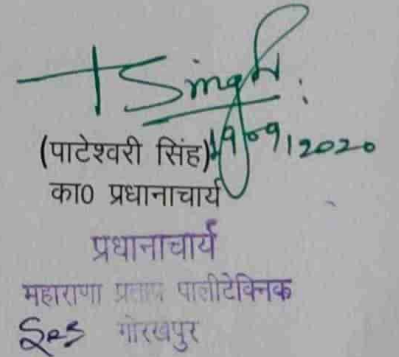 Singh
(पाटेश्वरी सिंह) 19/09/2020
का0 प्रधानाचार्य
प्रधानाचार्य
महाराणा प्रताप पालीटेक्निक
गोरखपुर